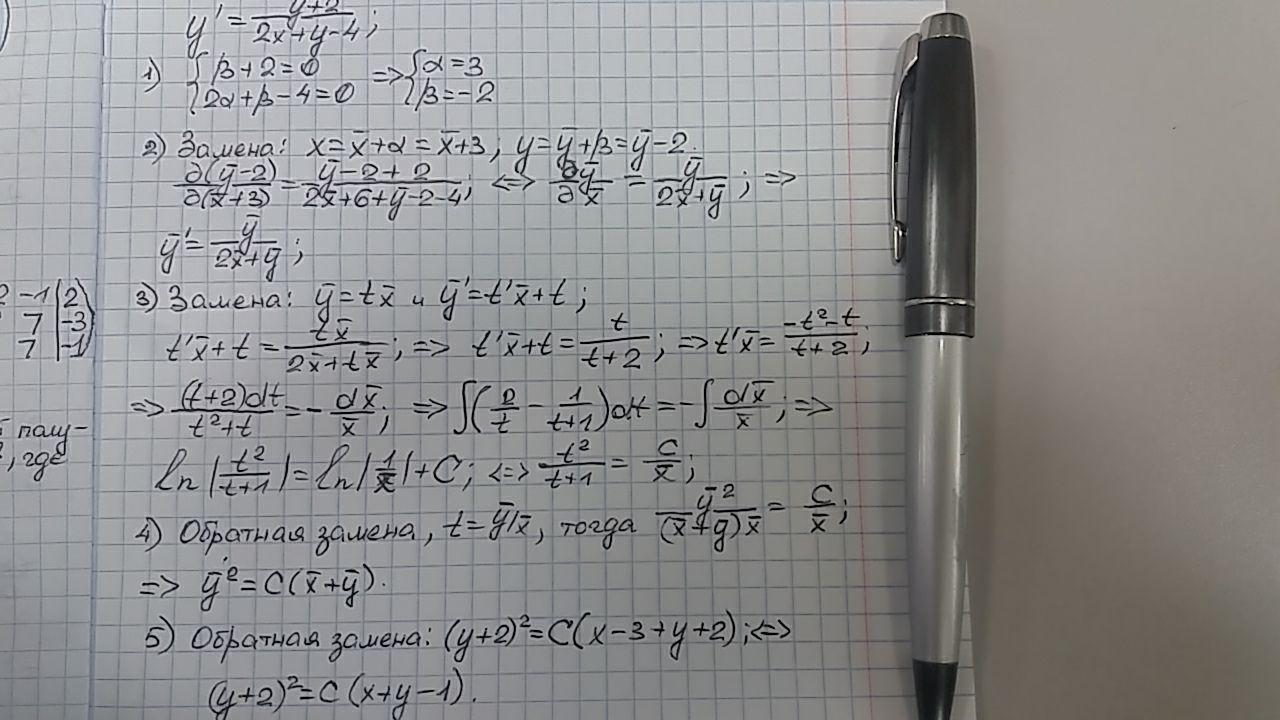 y' = (y+2)/(2x+y-4);
1) {β+2=0 {2α+β-4=0 => {α=3 {β=-2
2) Замена: x=x̄+α=x̄+3; y=ȳ+β=ȳ-2.
∂(ȳ-2)/∂(x̄+3) = (ȳ-2+2)/(2x̄+6+ȳ-2-4); <=> ∂ȳ/∂x̄ = ȳ/(2x̄+ȳ); =>
ȳ' = ȳ/(2x̄+ȳ);
3) Замена: ȳ=tx̄ и ȳ'=t'x̄+t;
t'x̄+t = tx̄/(2x̄+tx̄); => t'x̄+t = t/(t+2); => t'x̄ = (-t²-t)/(t+2);
=> (t+2)dt/(t²+t) = -dx̄/x̄; => ∫(2/t - 1/(t+1))dt = -∫dx̄/x̄; =>
ln|t²/(t+1)| = ln|1/x̄|+C; <=> t²/(t+1) = C/x̄;
4) Обратная замена, t=ȳ/x̄, тогда ȳ²/((x̄+ȳ)x̄) = C/x̄;
=> ȳ²=C(x̄+ȳ).
5) Обратная замена: (y+2)²=C(x-3+y+2); <=>
(y+2)²=C(x+y-1).
2 -1 | 2
7 | -3
7 | -1
полу-
, где